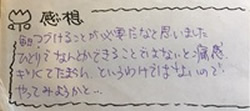 感想
つづけることが必要だなと思いました
ひとりでなんとかできることではないと痛感。
キリにてたまらん、というわけではないので
やってみようかと…